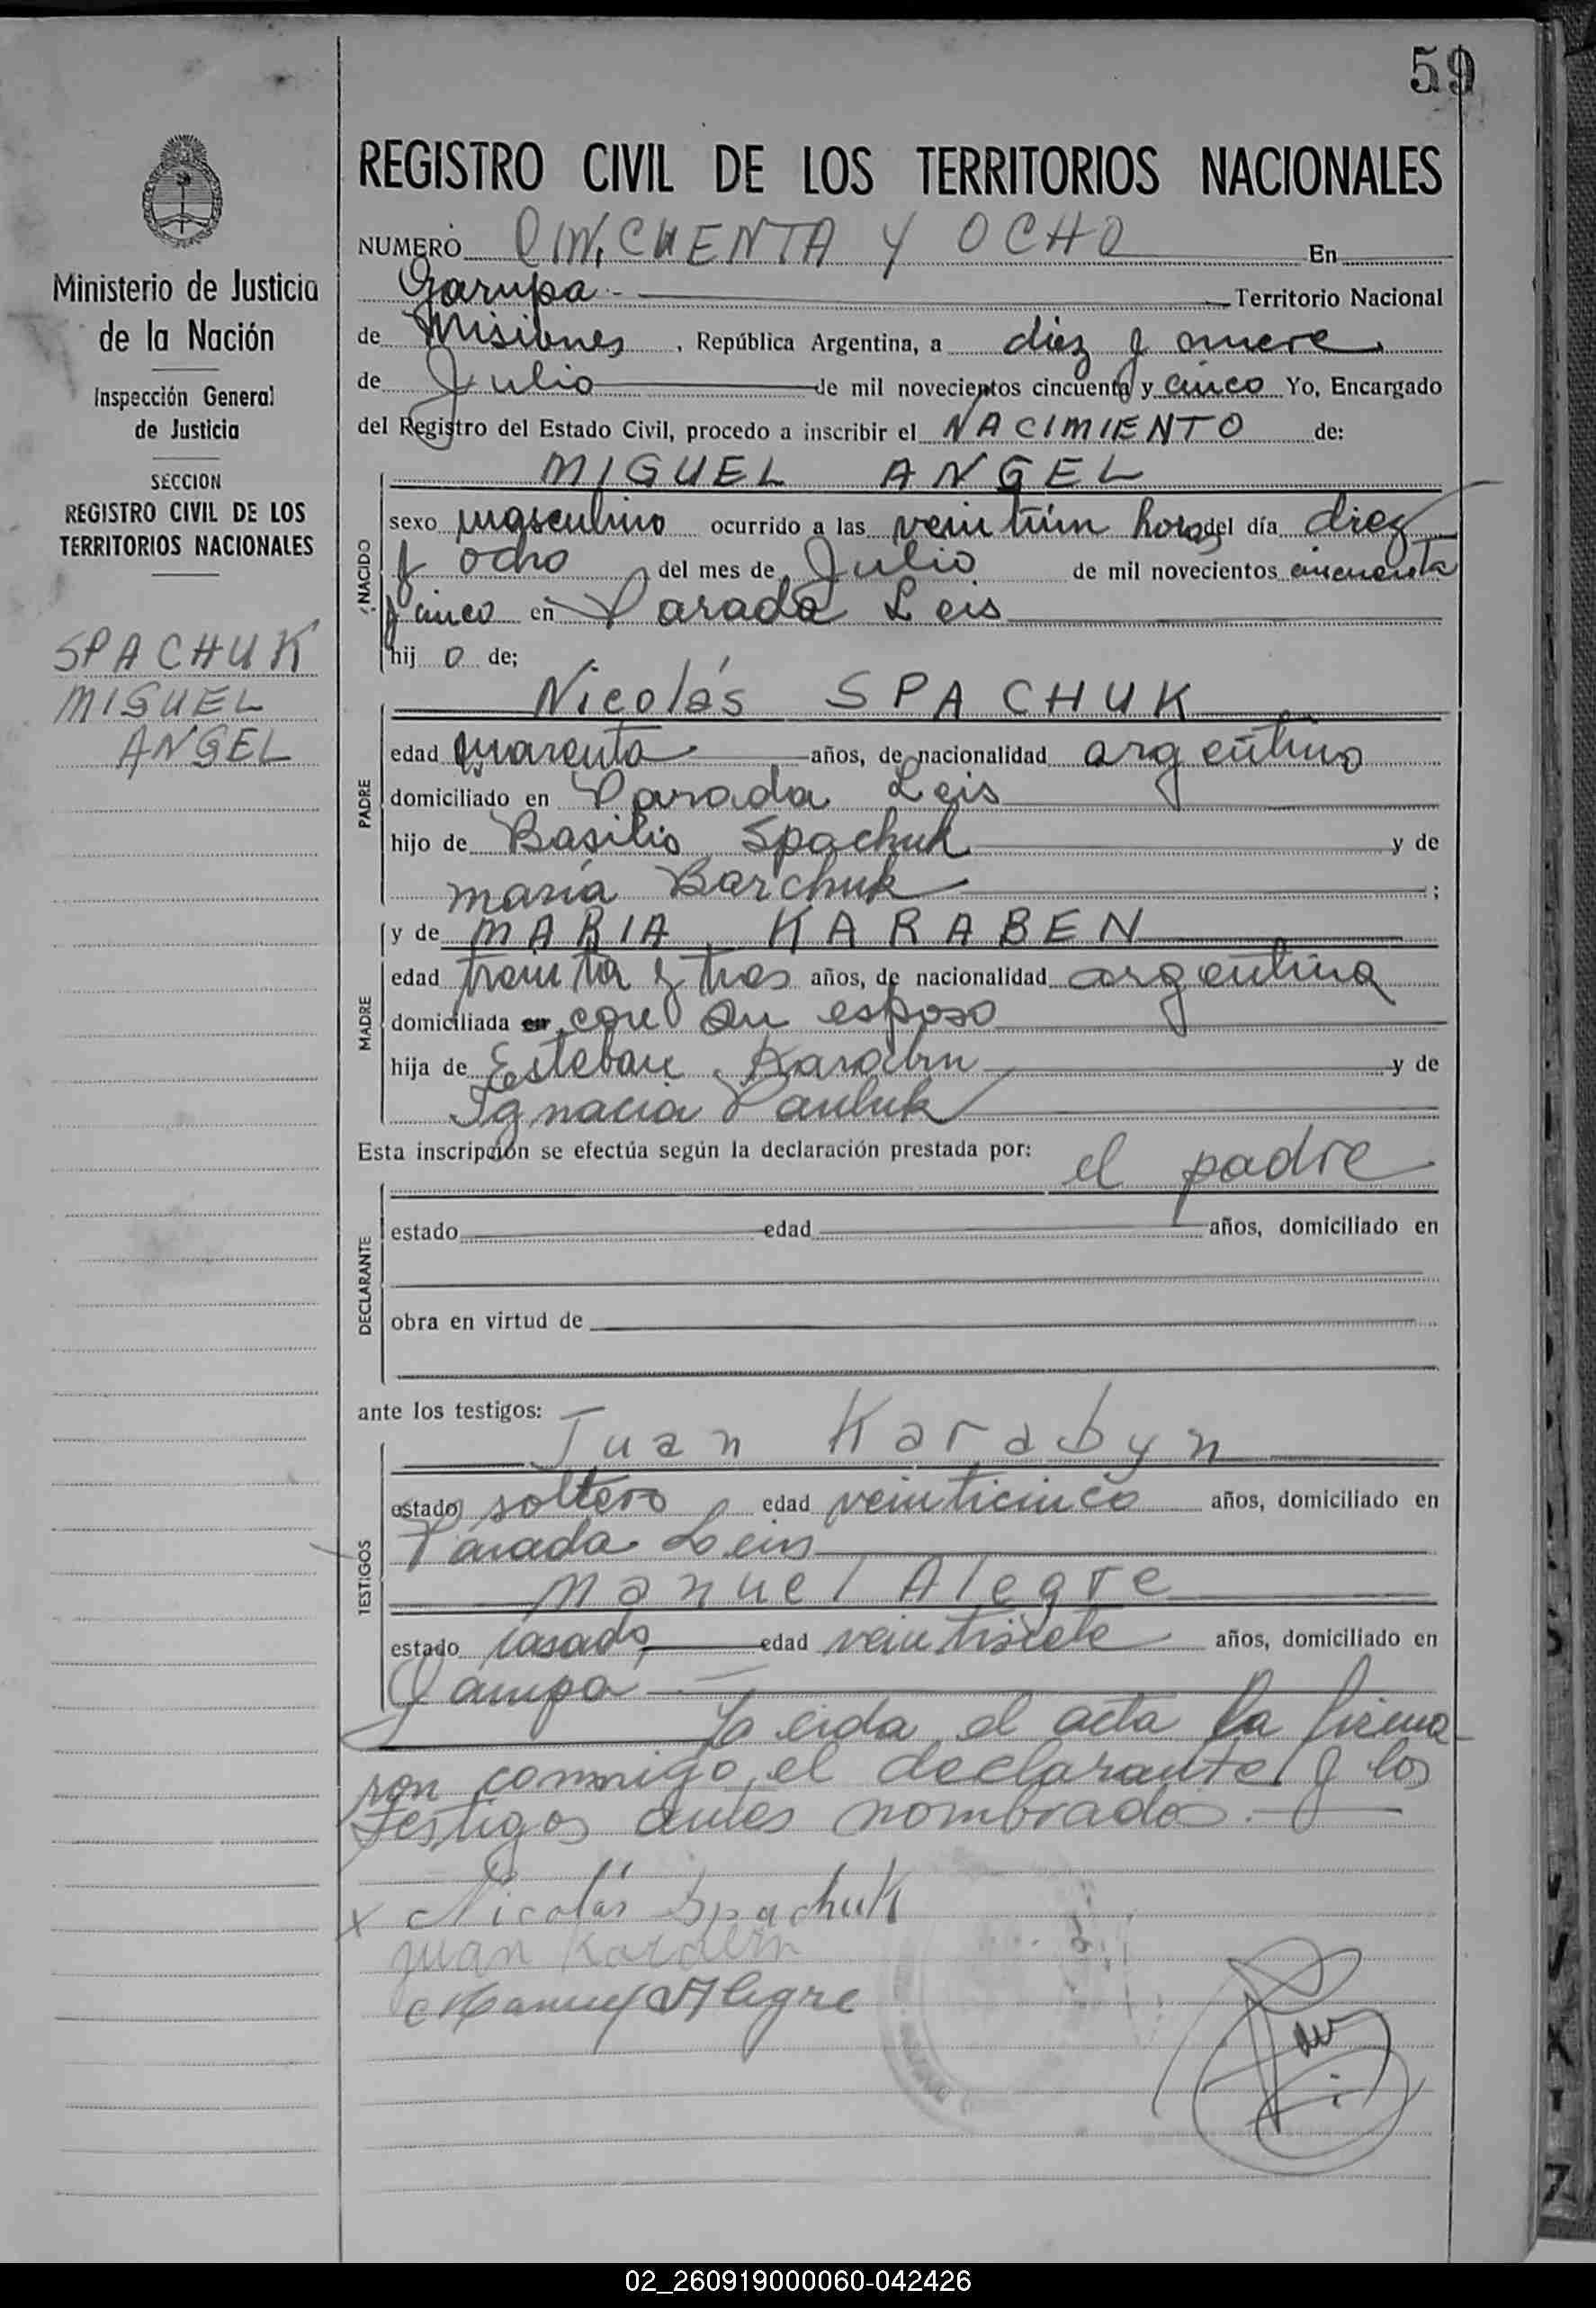 59
REGISTRO CIVIL DE LOS TERRITORIOS NACIONALES
NUMERO CINCUENTA Y OCHO En
Garupa Territorio Nacional
de Misiones, República Argentina, a diez y nueve
de Julio de mil novecientos cincuenta y cinco Yo, Encargado
del Registro del Estado Civil, procedo a inscribir el NACIMIENTO de:
MIGUEL ANGEL
sexo masculino ocurrido a las veintiún horas del día diez
y ocho del mes de Julio de mil novecientos cincuenta
y cinco en Parada Leis
hijo de;
NACIDO
Nicolás SPACHUK
edad cuarenta años, de nacionalidad argentino
domiciliado en Parada Leis
hijo de Basilio Spachuk y de
maria Barchuk;
PADRE
y de MARIA KARABEN
edad treinta y tres años, de nacionalidad argentina
domiciliada en con su esposo
hija de Esteban y de
Ignacia Pauluk
MADRE
Esta inscripción se efectúa según la declaración prestada por: el padre
estado edad años, domiciliado en
obra en virtud de
DECLARANTE
ante los testigos:
Juan Karabyn
estado soltero edad veinticinco años, domiciliado en
Parada Leis
Manuel Alegre
estado casado, edad veintisiete años, domiciliado en
Garupa
TESTIGOS
Leida el acta la firma-
ron conmigo, el declarante y los
testigos antes nombrados.
x Nicolás Spachuk
Juan
Manuel Alegre
Ministerio de Justicia
de la Nación
Inspección General
de Justicia
SECCION
REGISTRO CIVIL DE LOS
TERRITORIOS NACIONALES
SPACHUK
MIGUEL
ANGEL
02_260919000060-042426